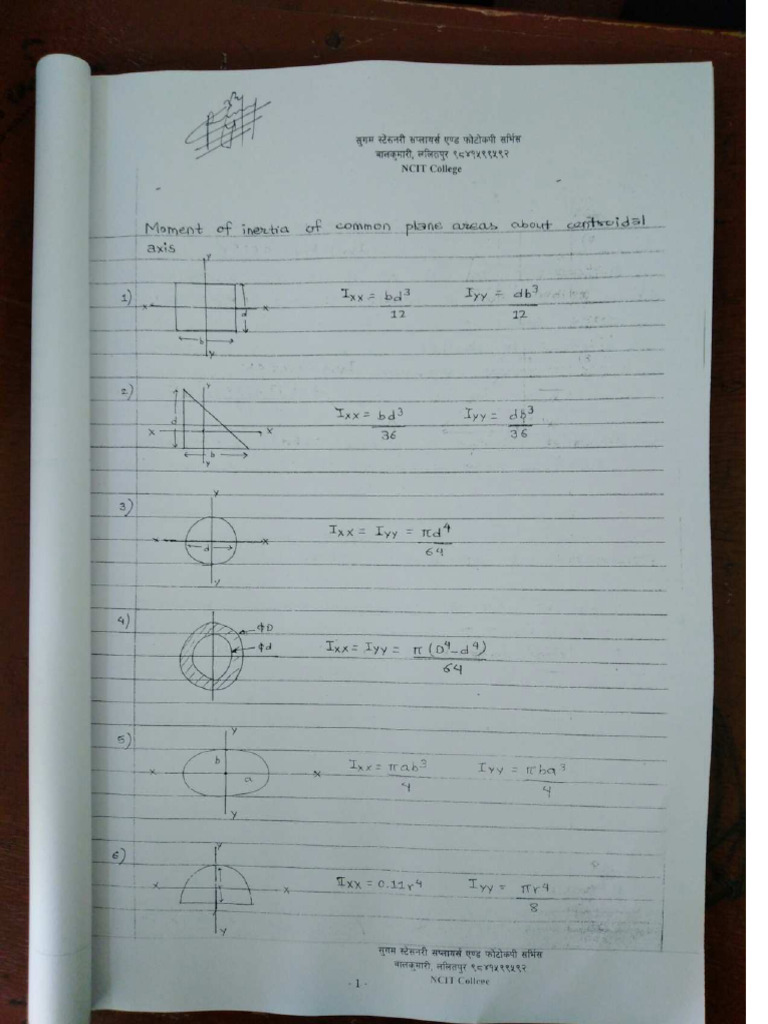 सुगम स्टेसनरी सप्लायर्स एण्ड फोटोकपी सर्भिस
बालकुमारी, ललितपुर ९८४१५९९५९२
NCIT College
Moment of inertia of common plane areas about centroidal
axis
1) y x x d b y Ixx = bd³/12 Iyy = db³/12
2) y x x d b y Ixx = bd³/36 Iyy = db³/36
3) y x x d y Ixx = Iyy = πd⁴/64
4) φD φd Ixx = Iyy = π(D⁴-d⁴)/64
5) y x x b a y Ixx = πab³/4 Iyy = πba³/4
6) x x y Ixx = 0.11r⁴ Iyy = πr⁴/8
सुगम स्टेसनरी सप्लायर्स एण्ड फोटोकपी सर्भिस
बालकुमारी, ललितपुर ९८४१५९९५९२
NCIT College
- 1 -